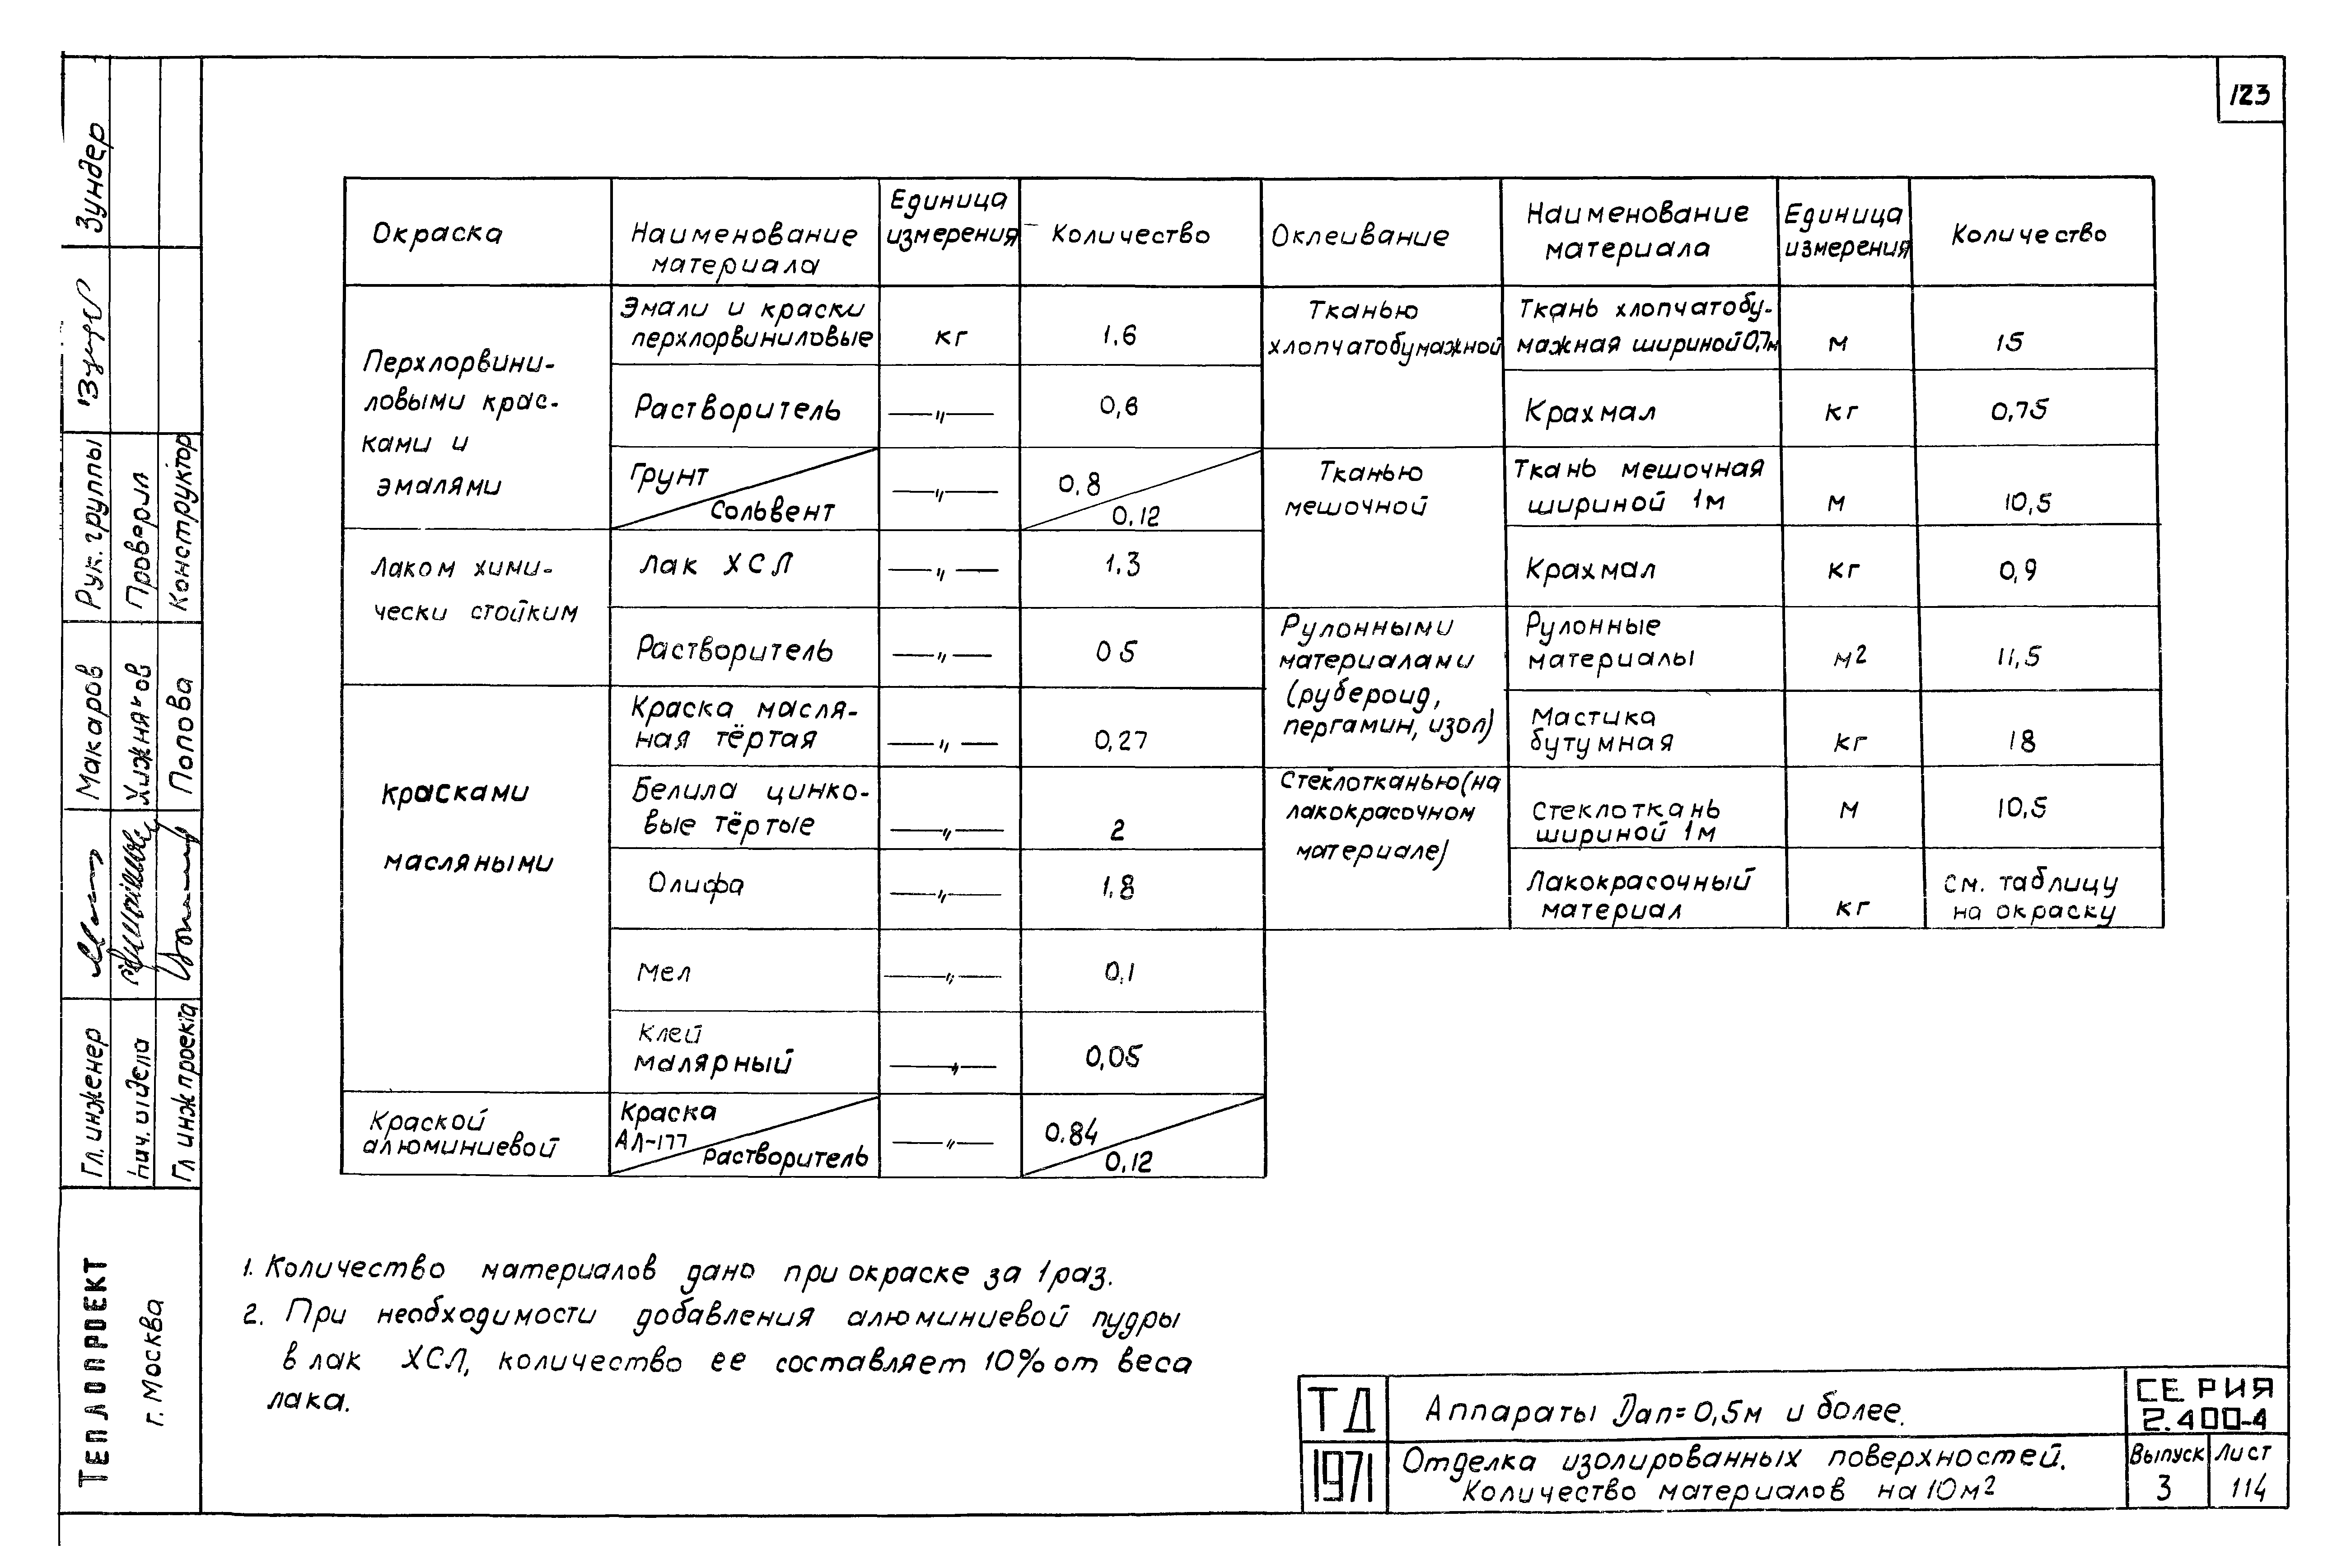 123
Окраска
Наименование
материала
Единица
измерения
Количество
Оклеивание
Наименование
материала
Единица
измерения
Количество
Перхлорвини-
ловыми крас-
ками и
эмалями
Эмали и краски
перхлорвиниловые
кг
1,6
Растворитель
—"—
0,6
Грунт
Сольвент
—"—
0,8
0,12
Лаком хими-
чески стойким
Лак ХСЛ
—"—
1,3
Растворитель
—"—
0 5
красками
масляными
Краска масля-
ная тёртая
—"—
0,27
Белила цинко-
вые тёртые
—"—
2
Олифа
—"—
1,8
Мел
—"—
0,1
Клей
малярный
—"—
0,05
Краской
алюминиевой
Краска
АЛ-177
растворитель
—"—
0,84
0,12
Тканью
хлопчатобумажной
Ткань хлопчатобу-
мажная шириной 0,7м
м
15
Крахмал
кг
0,75
Тканью
мешочной
Ткань мешочная
шириной 1м
м
10,5
Крахмал
кг
0,9
Рулонными
материалами
(рубероид,
пергамин, изол)
Рулонные
материалы
м2
11,5
Мастика
бутумная
кг
18
Стеклотканью (на
лакокрасочном
материале)
Стеклоткань
шириной 1м
м
10,5
Лакокрасочный
материал
кг
см. таблицу
на окраску
1. Количество материалов дано при окраске за 1 раз.
2. При необходимости добавления алюминиевой пудры
в лак ХСЛ, количество ее составляет 10% от веса
лака.
ТД
1971
Аппараты Dап=0,5м и более.
Отделка изолированных поверхностей.
Количество материалов на 10м2
СЕРИЯ
2.400-4
Выпуск
3
Лист
114
Зундер
Рук. группы
Проверил
Конструктор
Макаров
Хижняков
Попова
Гл. инженер
Нач. отдела
Гл инж проекта
ТЕПЛОПРОЕКТ
г. Москва